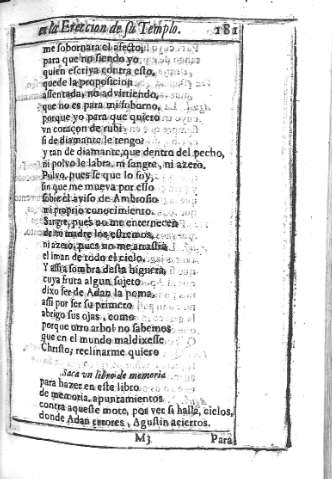 en la Ereccion de su Templo. 181
me sobornara el afecto,
para que no siendo yo
quien escriva contra esto,
quede la proposicion
assentada, no advirtiendo,
que no es para mi soborno,
porque yo para que quiero
vn coraçon de rubi
si de diamante le tengo:
y tan de diamante, que dentro del pecho,
ni polvo le labra, ni sangre, ni azero.
Polvo, pues se que lo soy,
sin que me mueva por esso
sobre el aviso de Ambrosio
mi proprio conocimiento.
Sangre, pues no me enternecen
de mi madre los estremos,
ni azero, pues no me arrastra
el iman de todo el cielo.
Y assi a sombra desta higuera,
cuya fruta algun sujeto
dixo ser de Adan la poma,
assi por ser su primero
abrigo sus ojas, como
porque otro arbol no sabemos
que en el mundo maldixesse
Christo, reclinarme quiero
Saca vn libro de memoria
para hazer en este libro
de memoria, apuntamientos
contra aqueste mote, por ver si halla, cielos,
donde Adan errores, Agustin aciertos.
M3 Para